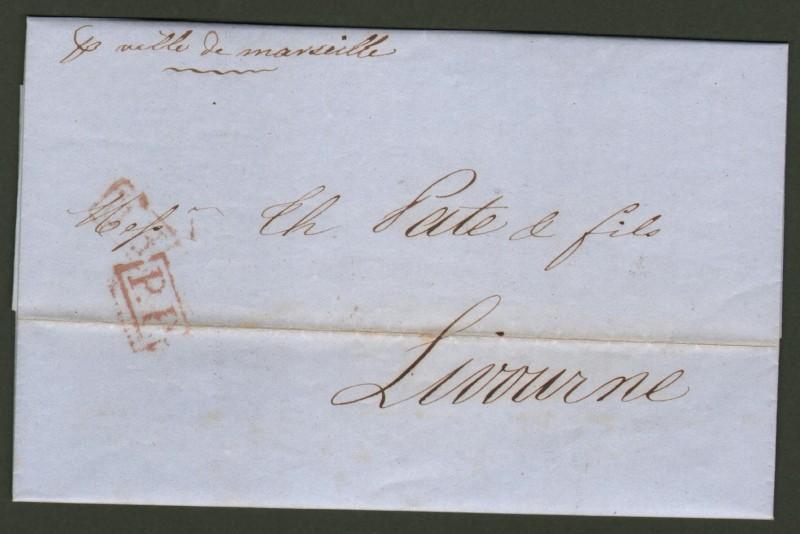 p ville de marseille
Mess.rs Th. Pate & fils
P.P.
Livourne